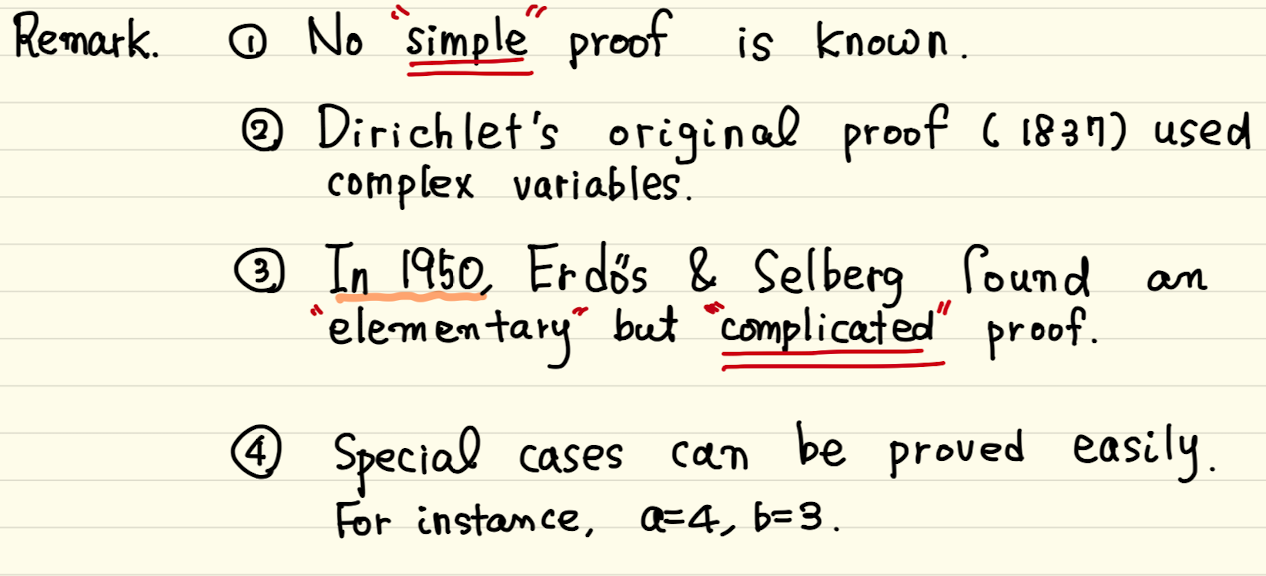 Remark. ① No "simple" proof is known.
② Dirichlet's original proof (1837) used
complex variables.
③ In 1950, Erdős & Selberg found an
"elementary" but "complicated" proof.
④ Special cases can be proved easily.
For instance, a=4, b=3.